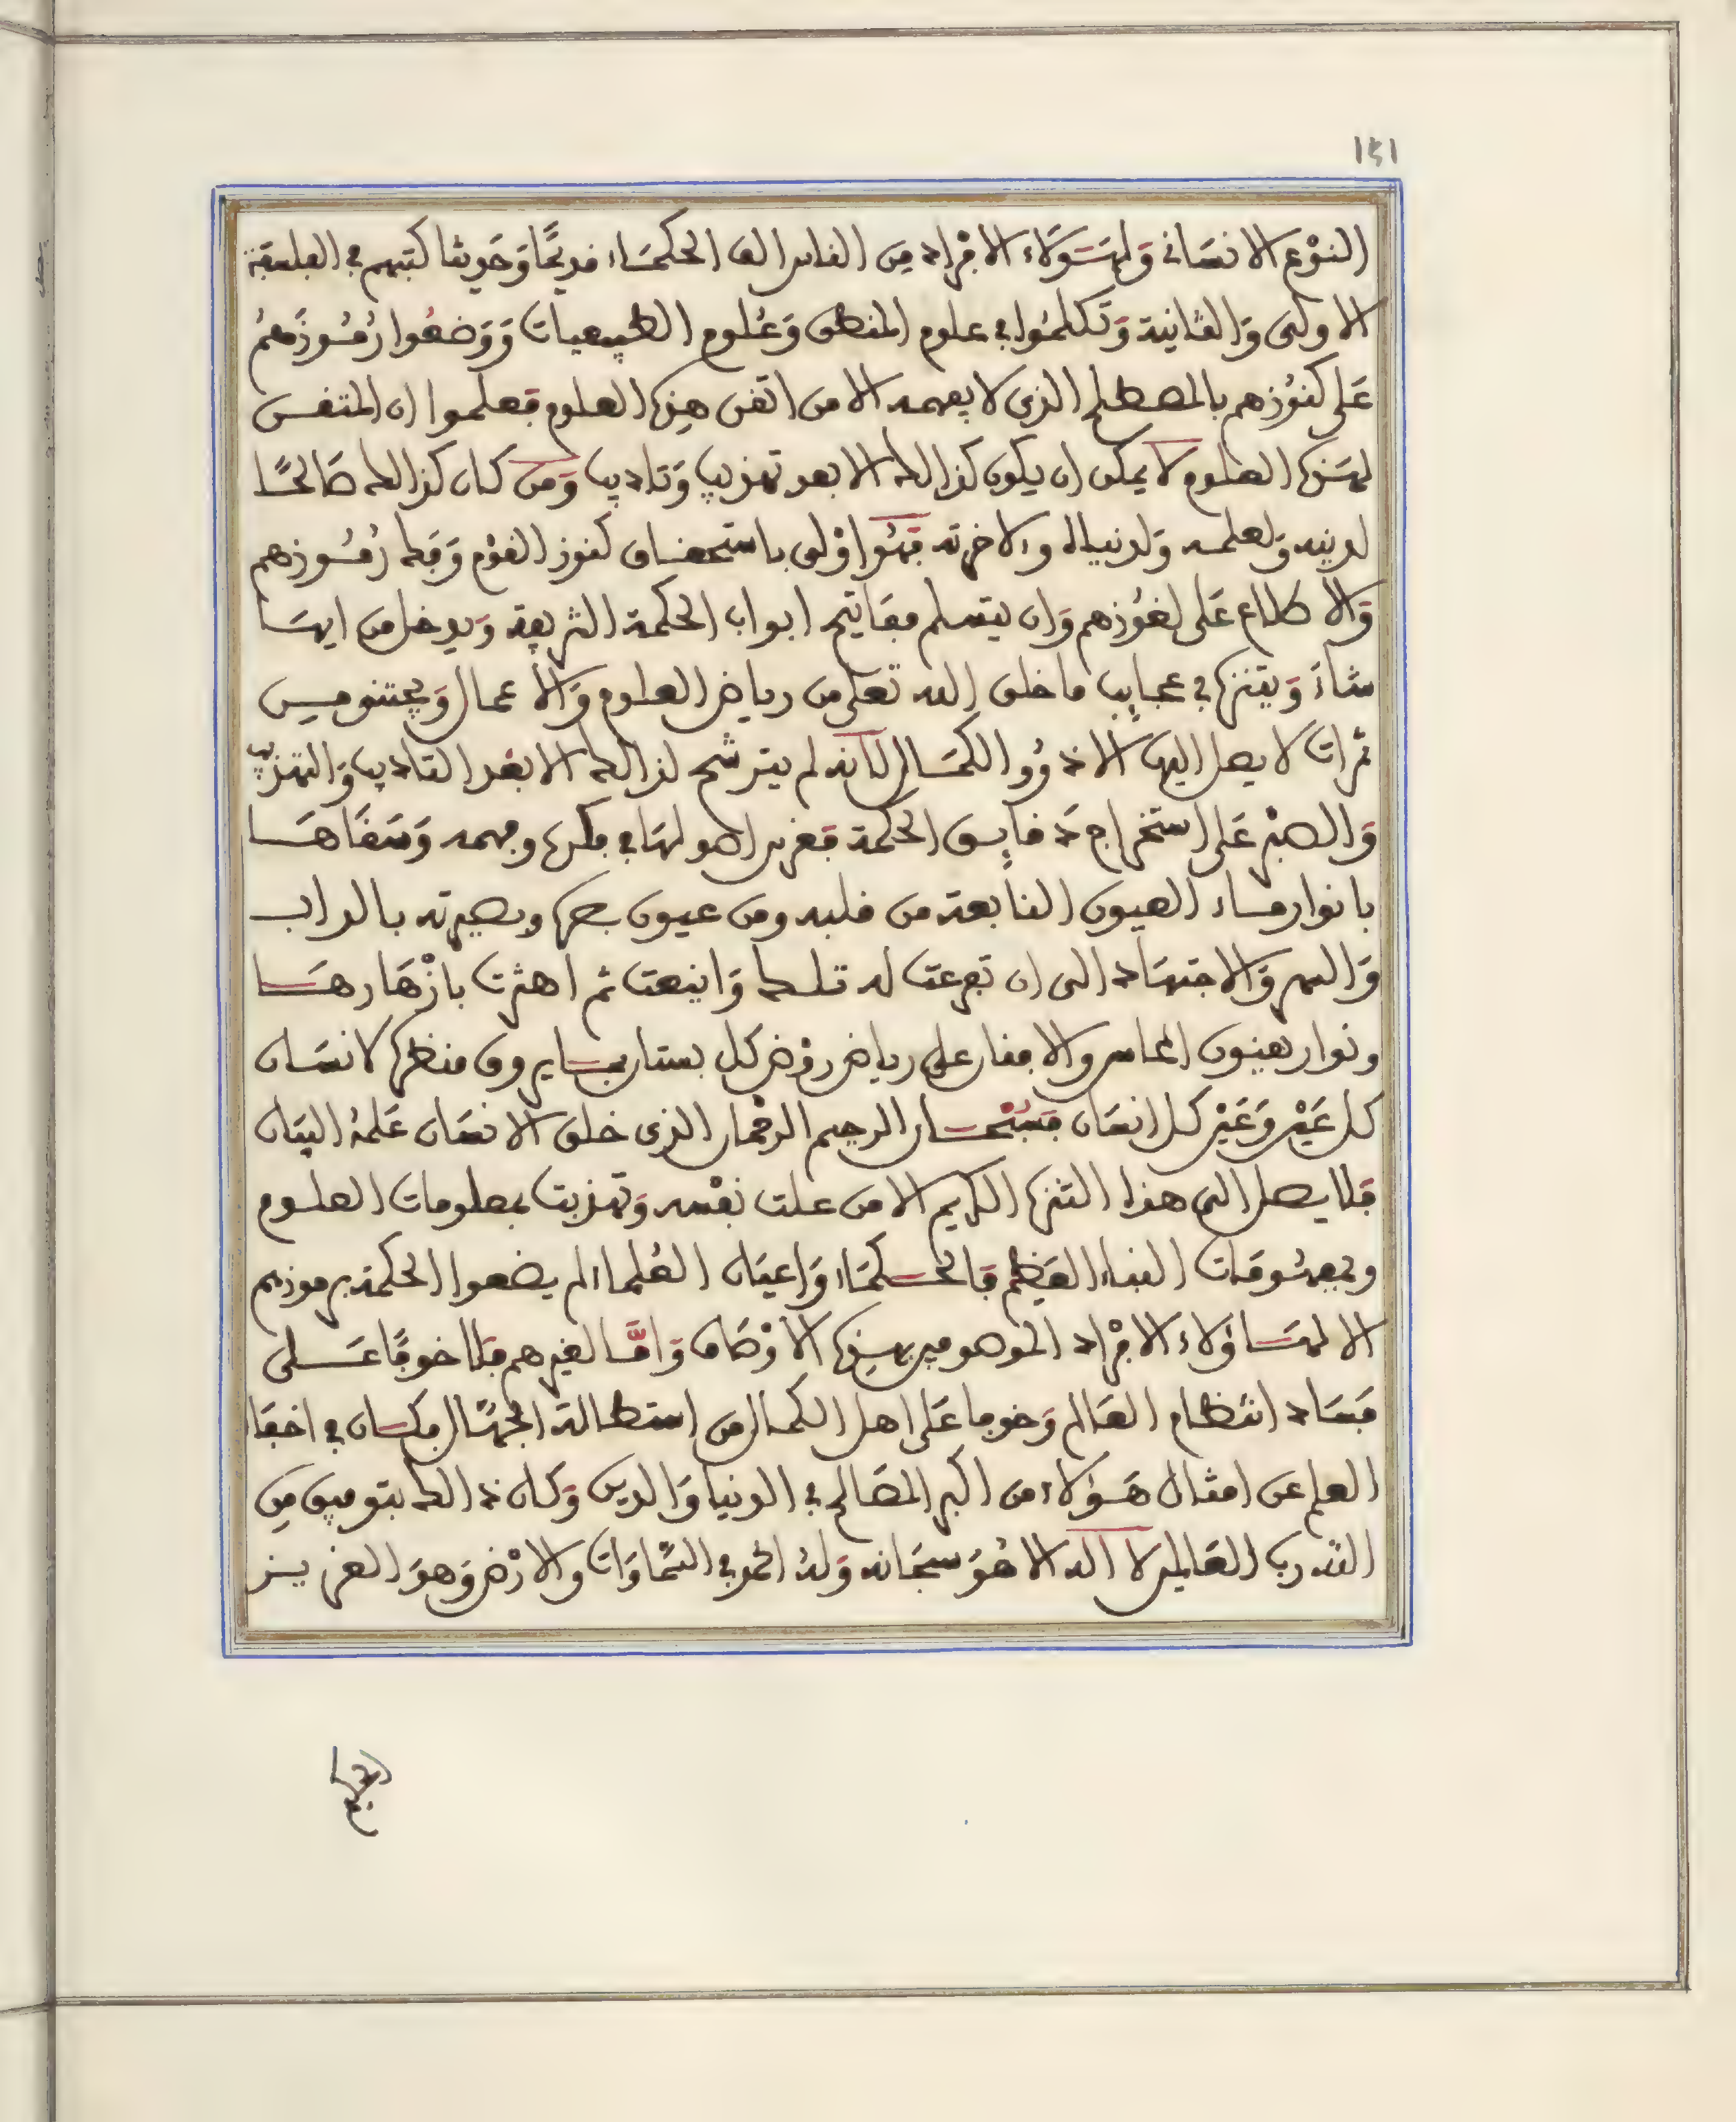 ١٤١
النوع الانساني ولهؤلاء الافراد من الناس الف الحكماء قديمًا وحديثا كتبهم في الفلسفة
الاولى والثانية وتكلموا في علوم المنطق وعلوم الطبيعيات ووضعوا رموزهم
على كنوزهم بالمصطلح الذي لا يفهمه الا من اتقن هذه العلوم فعلموا ان المتقن
لهذه العلوم لا يمكن ان يكون كذالك الا بعد تهذيب وتاديب ومن كان كذالك صالحًا
لدينه ولعلمه ولدنياه والاخرته فهو اولى باستحقاق كنوز القوم وفك رموزهم
والاطلاع على لغوزهم وان يتسلم مفاتيح ابواب الحكمة الشريفة ويدخل من ايها
شاء ويتنزه في عجايب ما خلق الله تعلى من رياض العلوم والاعمال ويجتنو من
ثمرات لا يصل اليها الا ذوو الكمال لانه لم يترشح لذالك الا بعد التاديب والتهذيب
والصبر على استخراج دقايق الحكمة فغرس اصولها في فكره وفهمه وسقاها
بانوار ماء العيون النابعة من قلبه ومن عيون بصره وبصيرته بالداب
والسهر والاجتهاد الى ان تفرعت له تلك واينعت ثم اهثرت بازهارها
ونوار بعيون المحاسن والافنان على رياض روض كل بستان بما يروق منظره لانسان
كل عين وعين كل انسان فسبحان الرحيم الرحمان الذي خلق الانسان علمه البيان
فلا يصل الى هذا التنزه الكريم الا من علت نفسه وتهذبت بمعلومات العلوم
وبمعشوقات النباء العظيم فالحكماء واعيان العلما لم يضعوا الحكمة برموزهم
الا لهاؤلاء الافراد الموصوفين بهذه الاوصاف واما لغيرهم فلا خوفًا على
فساد انتظام العالم وخوفا على اهل الكمال من استطالة الجهال فكان في اخفا
العلم عن امثال هؤلاء من اكبر المصالح في الدنيا والدين وكان ذالك بتوفيق من
الله رب العالمين لا اله الا هو سبحانه وله الحمد في السماوات والارض وهو العزيز
الحكيم